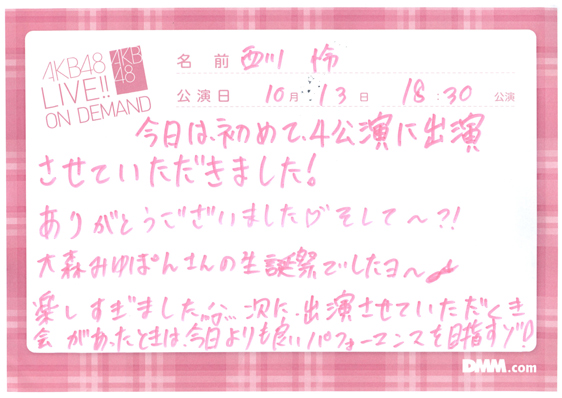 AKB48
LIVE!!
ON DEMAND
AKB
48
名前 西川 怜
公演日 10月13日 18:30 公演
今日は、初めて、4公演に出演
させていただきました!
ありがとうございました♡そして〜?!
大森みゆぽんさんの生誕祭でしたヨ〜♪
楽しすぎました 次に、出演させていただく機
会があったときは、今日よりも良いパフォーマンスを目指すゾ!!
DMM.com